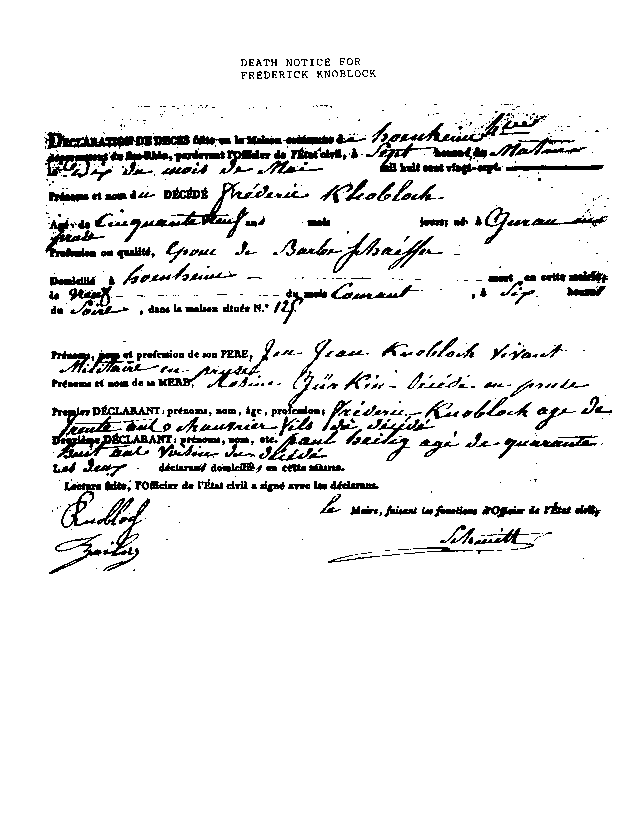 DEATH NOTICE FOR
FREDERICK KNOBLOCK
DÉCLARATION DE DÉCÈS faite en la Maison commune d hoenheim
département du Bas-Rhin, pardevant l'Officier de l'État civil, à Sept heures du Matin
le Dix du mois de Mai mil huit cent vingt-sept
Prénoms et nom du DÉCÉDÉ Fréderic Knobloch
Agé de Cinquante Neuf ans mois jours; né à en
pruse
Profession ou qualité, Epoux de Barbe Schaeffer
Domicilié à hoenheim mort en cette mairie,
le Neuf du mois Courant, à Six heures
du Soire, dans la maison située N.° 125
Prénoms, nom et profession de son PÈRE, feu Jean Knobloch vivant
Militaire en pruse
Prénoms et nom de sa MÈRE, Décédé en pruse
Premier DÉCLARANT: prénoms, nom, âge, profession; Fréderic Knobloch age de
trente ans fils du décédé
Deuxième DÉCLARANT: prénoms, nom, etc. paul agé de quarante
huit ans Voisin du décédé
Les deux déclarant domiciliés en cette mairie.
Lecture faite, l'Officier de l'État civil a signé avec les déclarans.
Knobloch
le Maire, faisant les fonctions d'Officier de l'État civil,
Schmitt